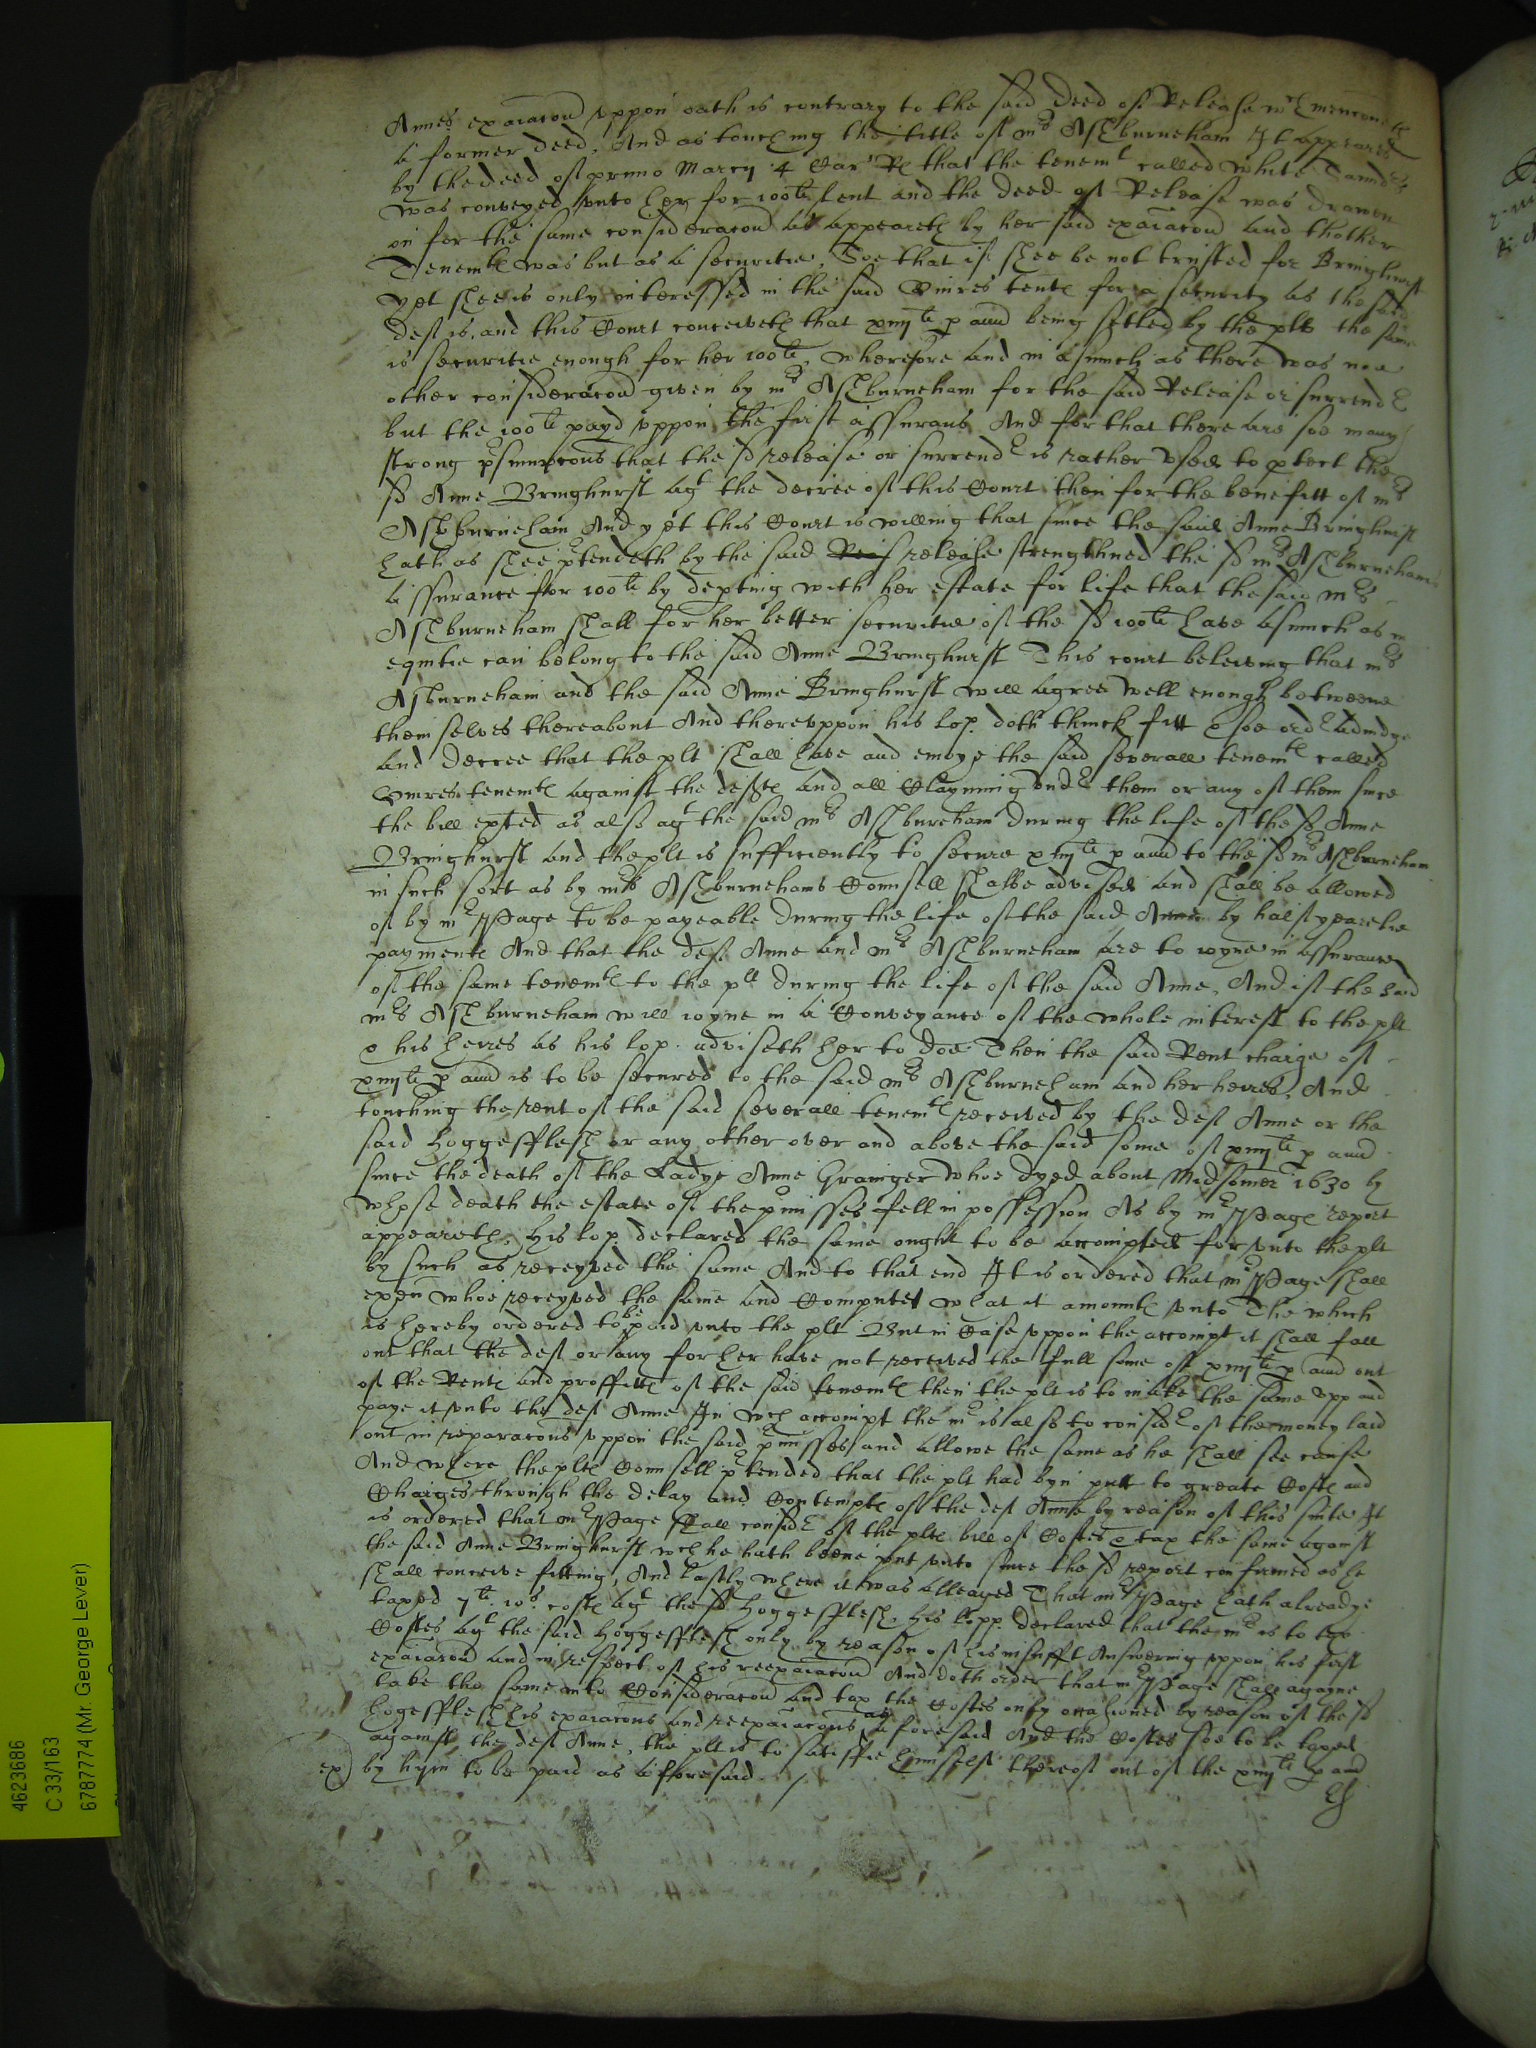 Annes exaiacon vppon oath is contrary to the said deed of Release wch menconeth
a former deed, And as touching the title of mrs Ashburneham It appeares
by the deed of primo Marcij 4 Car' Rs that the tenemt called White Sands
was conveyed vnto her for 100li lent and the deed of Release was drawen
in for the same consideracon as appeareth by her said exaiacon and thother
Tenemts was but as a securitie, Soe that if shee be not trusted for Bringhurst
yet shee is only interessed in the said tents for a security as the said
deft is, and this Court conceiveth that xiiijli p ann being setled by the plt the same
is securitie enough for her 100li, wherefore and in asmuch as there was noe
other consideracon given by mrs Ashburneham for the said Release or surrendr
but the 100li payd vppon the first assurans And for that there are soe many
strong psumpcons that the sd release or surrendr is rather vsed to ptect the
sd Anne Bringhurst agt the decree of this Court then for the benefitt of mrs
Ashburneham And yet this Court is willing that since the said Anne Bringhurst
hath as shee ptendeth by the said release strengthned the sd mrs Ashburnehams
assurance for 100li by depting with her estate for life that the said mrs
Ashburneham shall for her better securitie of the sd 100li have asmuch as in
equitie can belong to the said Anne Bringhurst This court beleiving that mrs
Ashburneham and the said Anne Bringhurst will agree well enough betweene
themselves thereabout And therevppon his lop. doth thinck fitt & soe ordr adiudge
and decree that the plt shall have and enioye the said severall tenemts called
tenemts against the defts and all Clayming vndr them or any of them since
the bill exhited as also agt the said mrs Ashburneham during the life of the sd Anne
Bringhurst and the plt is sufficiently to secure xiiijli p ann to the sd mrs Ashburneham
in such sort as by mrs Ashburnehams Counsell shalbe advised and shall be allowed
of by mr Page to be payeable during the life of the said Anne by halfe yearelie
payments And that the deft Anne and mrs Ashburneham are to ioyne in assurance
of the same tenemts to the plt during the life of the said Anne, And if the said
mrs Ashburneham will ioyne in a Conveyance of the whole interest to the plt
& his heires as his lop. adviseth her to doe Then the said Rent charge of
xiiijli p ann is to be secured to the said mrs Ashburneham and her heires, And
touching the rent of the said severall tenemts received by the deft Anne or the
said Hoggefflesh or any other over and above the said some of xiiijli p ann
since the death of the Ladye Anne Grainger whoe dyed about Midsomer 1630 by
whose death the estate of the pmisses fell in possession As by mr Pages report
appeareth, his lop. declared the same ought to be accompted for vnto the plt
by such as receyved the same And to that end It is ordered that mr Page shall
exn whoe receyved the same and Computet what it amounts vnto The which
is hereby ordered to be paid vnto the plt But in Case vppon the accompt it shall fall
out that the deft or any for her have not received the full some of xiiijli p ann out
of the Rents and proffitts of the said tenemts then the plt is to make the same vpp and
paye it vnto the deft Anne In wch accompt the mr is also to considr of the money laid
out in reparacons vppon the said pmisses and allowe the same as he shall see cause
And where the plts Counsell ptended that the plt had byn putt to greate Costs and
Charges through the delay and Contempts of the deft Anne by reason of this suite It
is ordered that mr Page shall considr of the plts bill of Costes & tax the same against
the said Anne Bringhurst wch he hath beene put vnto since the sd report confirmed as he
shall conceive fitting, And Lastly where it was alleaged That mr Page hath alreadye
taxed 7li. 10s costs agt the sd Hoggefflesh, his lopp. declared that the mr is to tax
Costes agt the said Hoggefflesh only by reason of his insufft Answering vppon his first
exaiacon and in respect of his reexaiacon And doth order that mr Page shall againe
take the same into Consideracon and tax the Costes only occasioned by reason of the sd
Hogefflesh his exaiacons and reexaiacons as aforesaid And the Costes soe to be taxed
against the deft Anne, the plt is to satisfie himselfe thereof out of the xiiijli p ann
ex) by hym to be paid as afforesaid. /
4623686
C 33/163
6787774 (Mr. George Lever)